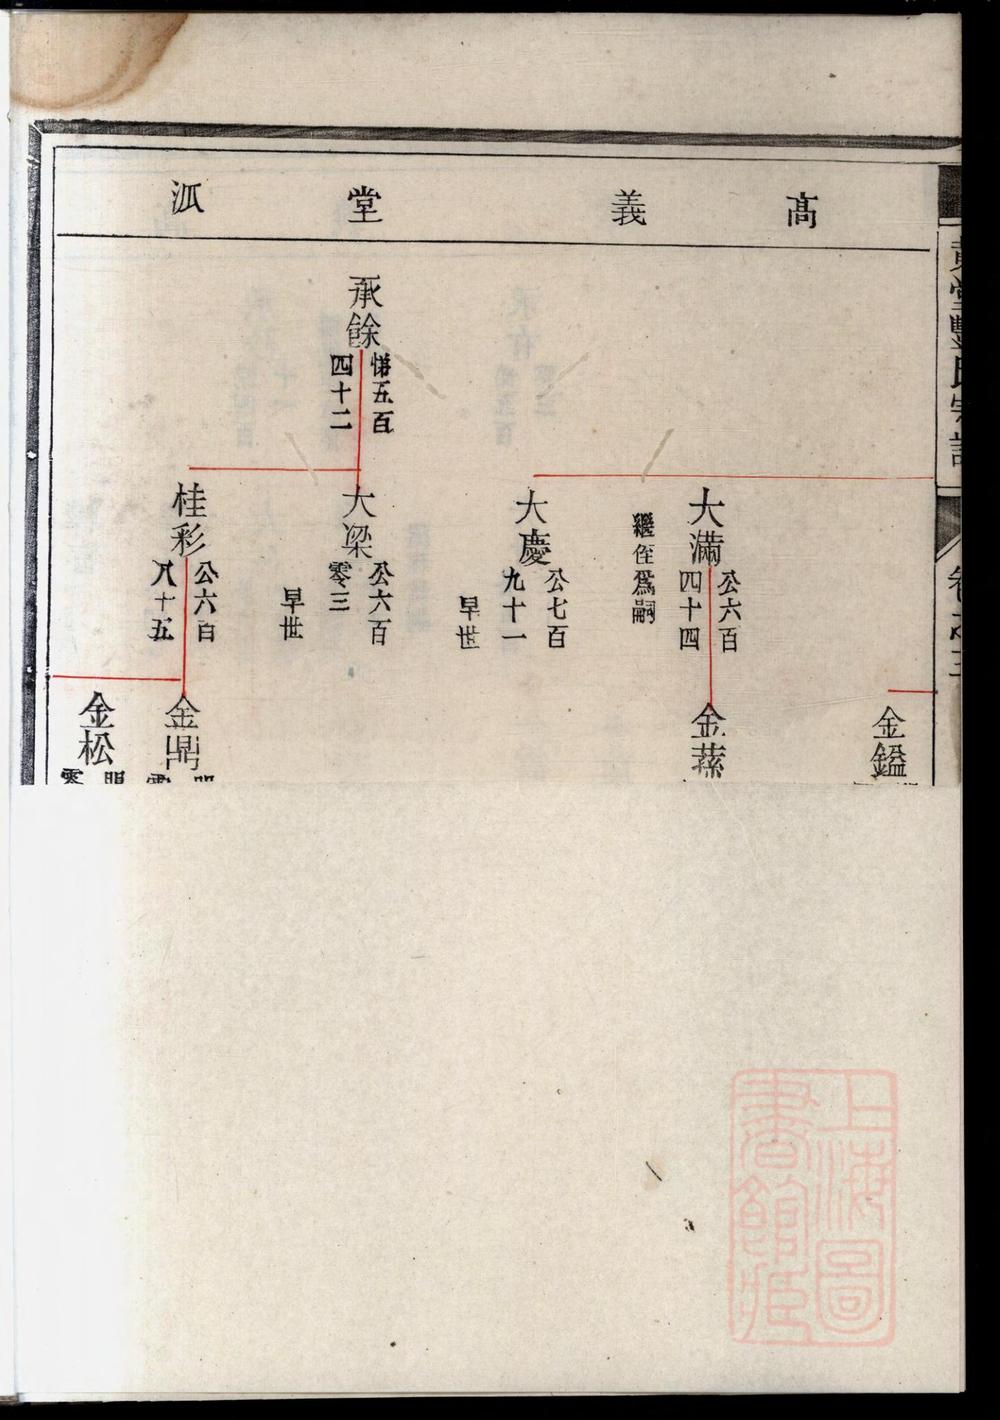 高義堂派
承餘
悌五百
四十二
大滿
公六百
四十四
繼侄爲嗣
大慶
公七百
九十一
早世
大梁
公六百
零三
早世
桂彩
公六百
八十五
金鎰
金蓀
金鼎
金松
零
上海圖
書館藏